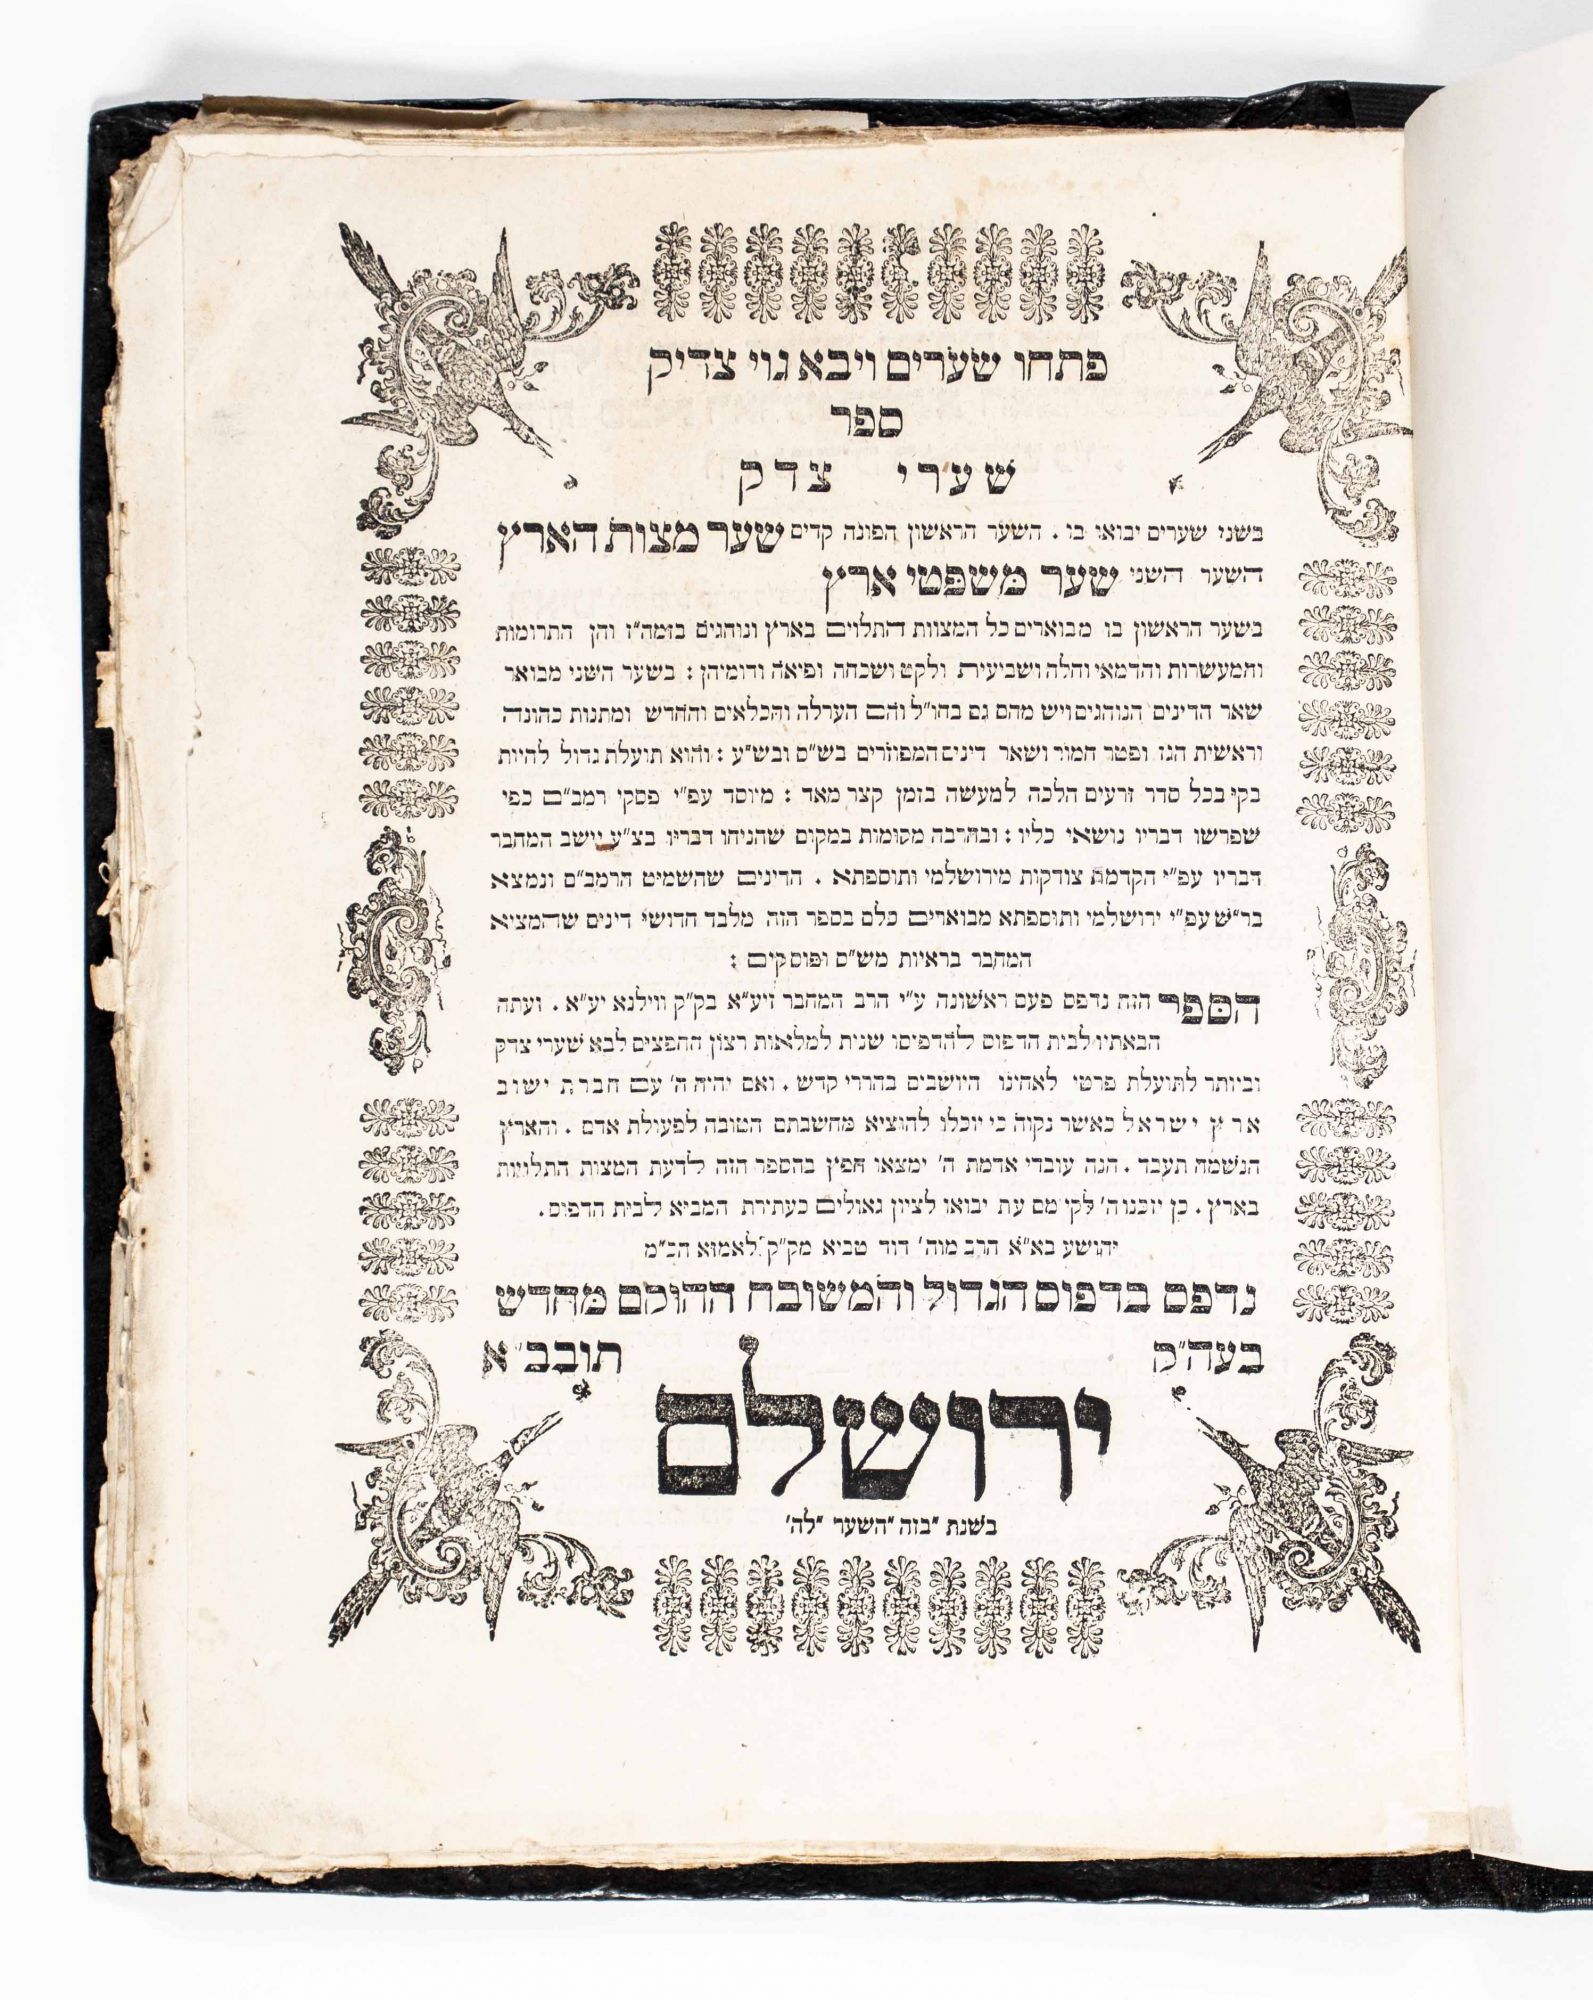 פתחו שערים ויבא גוי צדיק
ספר
שערי צדק
בשני שערים יבואו בו . השער הראשון הפונה קדים שער מצות הארץ
השער השני שער משפטי ארץ
בשער הראשון בו מבוארים כל המצוות התלוים בארץ ונוהגים בזמה"ז והן התרומות
והמעשרות והדמאי וחלה ושביעית ולקט ושכחה ופיאה ודומיהן : בשער השני מבואר
שאר הדינים הנוהגים ויש מהם גם בחו"ל והם הערלה והכלאים והחדש ומתנות כהונה
וראשית הגז ופטר חמור ושאר דינים המפוזרים בש"ס ובש"ע : והוא תועלת גדול להיות
בקי בכל סדר זרעים הלכה למעשה בזמן קצר מאד : מיוסד עפ"י פסקי רמב"ם כפי
שפרשו דבריו נושאי כליו : ובהרבה מקומות במקום שהניחו דבריו בצ"ע יישב המחבר
דבריו עפ"י הקדמת צודקות מירושלמי ותוספתא . הדינים שהשמיט הרמב"ם ונמצא
בר"ש עפ"י ירושלמי ותוספתא מבוארים כלם בספר הזה מלבד חדושי דינים שהמציא
המחבר בראיות מש"ס ופוסקים :
הספר הזה נדפס פעם ראשונה ע"י הרב המחבר זיע"א בק"ק ווילנא יע"א . ועתה
הבאתיו לבית הדפוס להדפיסו שנית למלאות רצון החפצים לבא שערי צדק
וביותר לתועלת פרטי לאחינו היושבים בהררי קדש . ואם יהיה ה' עם חברת ישוב
ארץ ישראל כאשר נקוה כי יוכלו להוציא מחשבתם הטובה לפעולת אדם . והארץ
הנשמה תעבד . הנה עובדי אדמת ה' ימצאו חפץ בהספר הזה לדעת המצות התלויות
בארץ . כן יזכנו ה' לקיימם עת יבואו לציון גאולים כעתירת המביא לבית הדפוס .
יהושע בא"א הרב מוה' דוד טביא מק"ק לאמזא הכ"מ
נדפס בדפוס הגדול והמשובח ההוקם מחדש
בעה"ק תובב"א
ירושלם
בשנת "בזה "השער "לה'